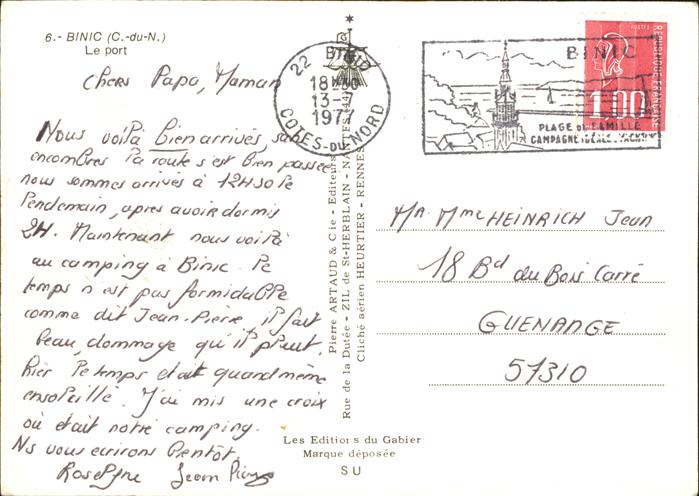 6.- BINIC (C.-du-N.)
Le port
Chers Papa, Maman
Nous voilà bien arrivés, sans
encombres la route s'est bien passée
nous sommes arrivés à 12H30 le
lendemain, apres avoir dormis
2H. Maintenant nous voilà
au camping à Binic. le
temps n'est pas formidable
comme dit Jean-Pierre, il fait
beau, dommage qu'il pleut.
hier le temps était quand même
ensoleillé. J'ai mis une croix
où était notre camping.
Ns vous ecrirons bientôt.
Roselyne Jean Pierre
22 BINIC
18H30
13-7
1977
COTES-DU-NORD
BINIC
PLAGE DE FAMILLE
REPUBLIQUE FRANCAISE
POSTES
1.00
Pierre ARTAUD & Cie - Editeurs
Rue de la Dutée - ZIL de St-HERBLAIN - NANTES
Cliché aérien HEURTIER - RENNES
Mr Mme HEINRICH Jean
18 Bd du Bois Carré
GUENANGE
57310
Les Editions du Gabier
Marque déposée
SU